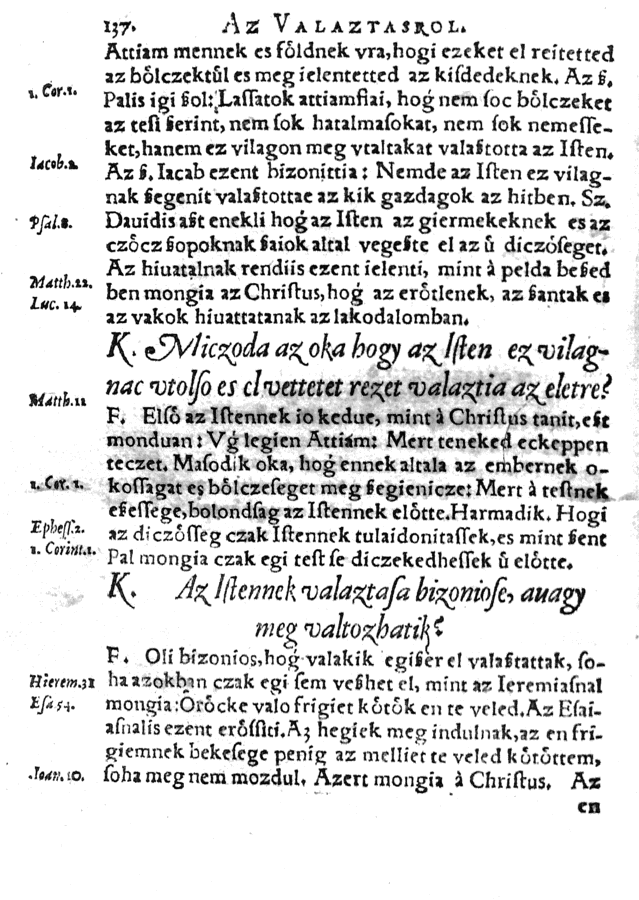 137. AZ VALAZTASROL.
Attiam mennek es fôldnek vra, hogi ezeket el reitetted
az bôlczektûl es meg ielentetted az kiſdedeknek. Az ß.
1. Cor. 1. Palis igi ßol: Laſſatok attiamfiai, hoǵ nem ſoc bôlczeket
az teſi ßerint, nem ſok hatalmaſokat, nem ſok nemeſſe-
ket, hanem ez vilagon meg vtaltakat valaßtotta az Iſten.
Iacob. 2 Az ß. Iacab ezent bizonittia: Nemde az Iſten ez vilag-
nak ßegenit valaßtottae az kik gazdagok az hitben. Sz.
Pſal. 8. Dauidis aßt enekli hoǵ az Iſten az giermekeknek es az
czôcz ßopoknak ßaiok altal vegeßte el az û diczóſeget.
Az hiuatalnak rendiis ezent ielenti, mint à pelda beßed
Matth. 22. ben mongia az Chriſtus, hoǵ az erôtlenek, az ßantak es
Luc. 14. az vakok hiuattatanak az lakodalomban.
K. Miczoda az oka hogy az Iſten ez vilag-
nac vtolſo es el vettetet rezet valaztia az eletre?
Matth. 11 F. Elſô az Iſtennek io kedue, mint à Chriſtus tanit, eßt
monduan: Vǵ legien Attiam: Mert teneked eckeppen
teczet. Maſodik oka, hoǵ ennek altala az embernek o-
1. Cor. 1. koſſagat es bôlczeſeget meg ßegienicze: Mert à teſtnek
eßeſſege, bolondſag az Iſtennek elôtte. Harmadik. Hogi
Epheſſ. 2. az diczôſſeg czak Iſtennek tulaidonitaſſek, es mint ßent
1. Corint. 1. Pal mongia czak egi teſt ſe diczekedheſſek û elôtte.
K. Az Iſtennek valaztaſa bizonioſe, auagy
meg valtozhatik?
F. Oli bizonios, hoǵ valakik egißer el valaßtattak, ſo-
Hierem. 31 ha azokban czak egi ſem veßhet el, mint az Ieremiaſnal
Eſa 54. mongia: Orôcke valo frigiet kôtôk en te veled. Az Eſai-
aſnalis ezent erôſſiti. Az hegiek meg indulnak, az en fri-
giemnek bekeſege penig az melliet te veled kôtôttem,
Ioan. 10. ſoha meg nem mozdul. Azert mongia à Chriſtus. Az
en